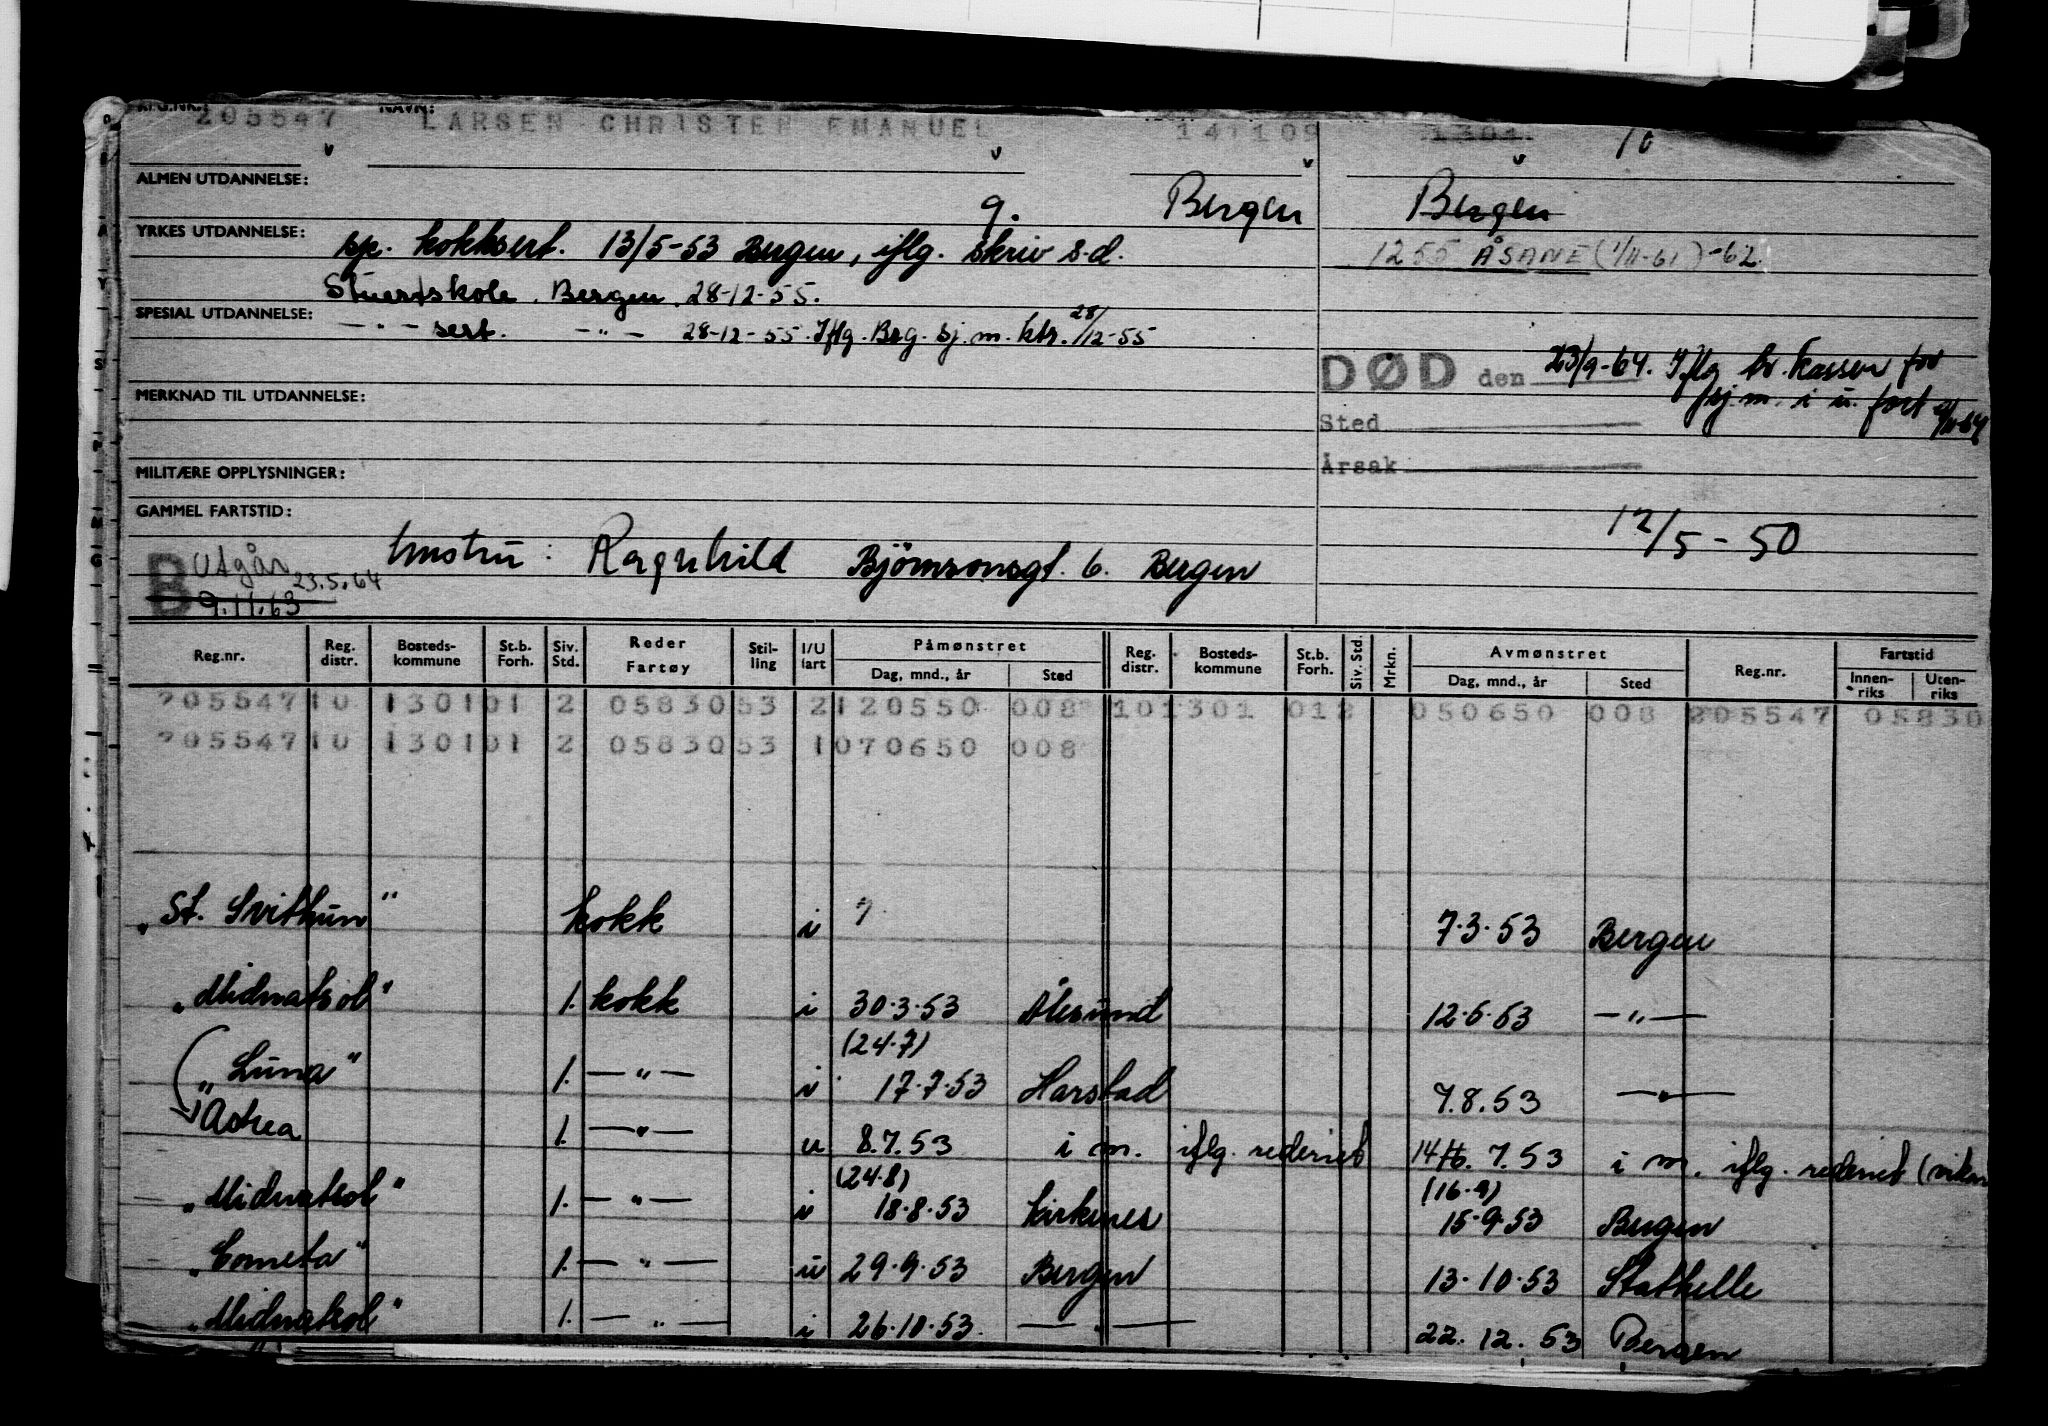 REG.NR.: NAVN:
205547 LARSEN CHRISTEN EMANUEL 141109 1301. 10
ALMEN UTDANNELSE:
g. Bergen Bergen
YRKES UTDANNELSE: sp. kokksert. 13/5-53 Bergen, iflg. skriv s.d.
1255 ÅSANE (1/11-61) -62
Stuertskole. Bergen. 28-12-55.
SPESIAL UTDANNELSE: — " — sert. — " — 28-12-55. Iflg. Brg. sj. m. ktr. 28/12-55
DØD den 23/9-64. Iflg br. kassen for
sj.m. i u. fart /11-64
MERKNAD TIL UTDANNELSE:
Sted
Årsak
MILITÆRE OPPLYSNINGER:
GAMMEL FARTSTID:
12/5-50
hustru: Ragnhild Bjørnsonsgt. 6. Bergen
B Utgår 23.5.64
9.11.63
Reg.nr. Reg. distr. Bosteds-kommune St.b. Forh. Siv. Std. Reder Fartøy Stil-ling I/U fart Påmønstret Dag, mnd., år Sted Reg. distr. Bosteds-kommune St.b. Forh. Siv. Std. Mrkn. Avmønstret Dag, mnd., år Sted Reg.nr. Fartstid Innen-riks Uten-riks
205547 10 1301 01 2 05830 53 2 120550 008 10 1301 012 050650 008 205547 05830
205547 10 1301 01 2 05830 53 1 070650 008
"St. Svithun" kokk i ? 7.3.53 Bergen
"Midnatsol" 1. kokk i 30.3.53 Ålesund 12.6.53 — " —
(24.7)
"Luna" 1. — " — i 17.7.53 Harstad 7.8.53 — " —
Astrea 1. — " — u 8.7.53 i m. iflg. rederiet 14/16. 7.53 i m. iflg. rederiet (vikar
(24.8) (16.9)
"Midnatsol" 1. — " — i 18.8.53 Kirkenes 15.9.53 Bergen
"Cometa" 1. — " — u 29.9.53 Bergen 13.10.53 Stathelle
"Midnatsol" 1. — " — i 26.10.53. — " — 22.12.53 Bergen